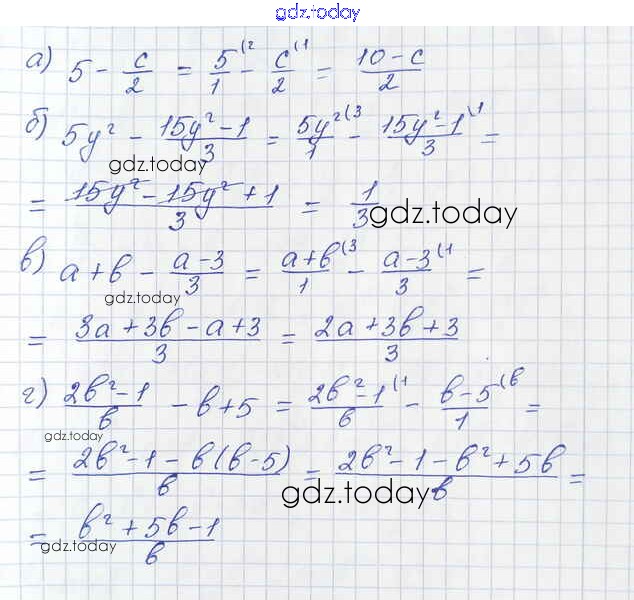 gdz.today
а) 5 - c/2 = 5/1 (2 - c/2 (1 = 10-c/2
б) 5y² - 15y²-1/3 = 5y²/1 (3 - 15y²-1/3 (1 =
gdz.today
= 15y²-15y²+1/3 = 1/3
gdz.today
в) a+b - a-3/3 = a+b/1 (3 - a-3/3 (1 =
gdz.today
= 3a+3b-a+3/3 = 2a+3b+3/3
г) 2b²-1/b - b+5 = 2b²-1/b (1 - b-5/1 (b =
gdz.today
= 2b²-1-b(b-5)/b = 2b²-1-b²+5b/b =
gdz.today
= b²+5b-1/b
gdz.today